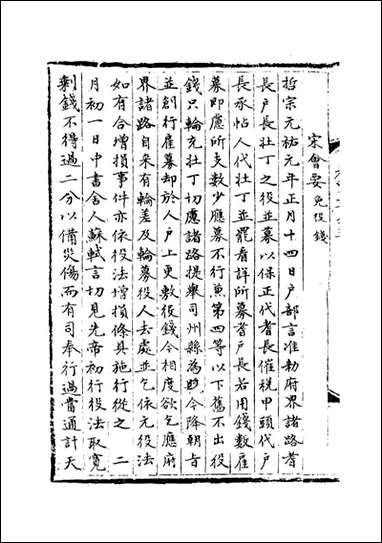 宋會要 免役錢
哲宗元祐元年正月十四日户部言准勑府界諸路耆
長户長壯丁之役並募以保正代耆長催稅甲頭代户
長承帖人代壯丁並罷看詳所募耆户長若用錢數雇
募即慮所支數少應募不行兼第四等以下舊不出役
錢只輪充壯丁切慮諸路提舉司州縣為見今降朝旨
並創行雇募却於人户上更敷役錢今相度欲乞應府
界諸路自來有輪差及輪募役人去處並乞依元役法
如有合增損事件亦依役法增損條具施行從之 二
月初一日中書舍人蘇軾言切見先帝初行役法取寛
剩錢不得過二分以備災傷而有司奉行過當通計天